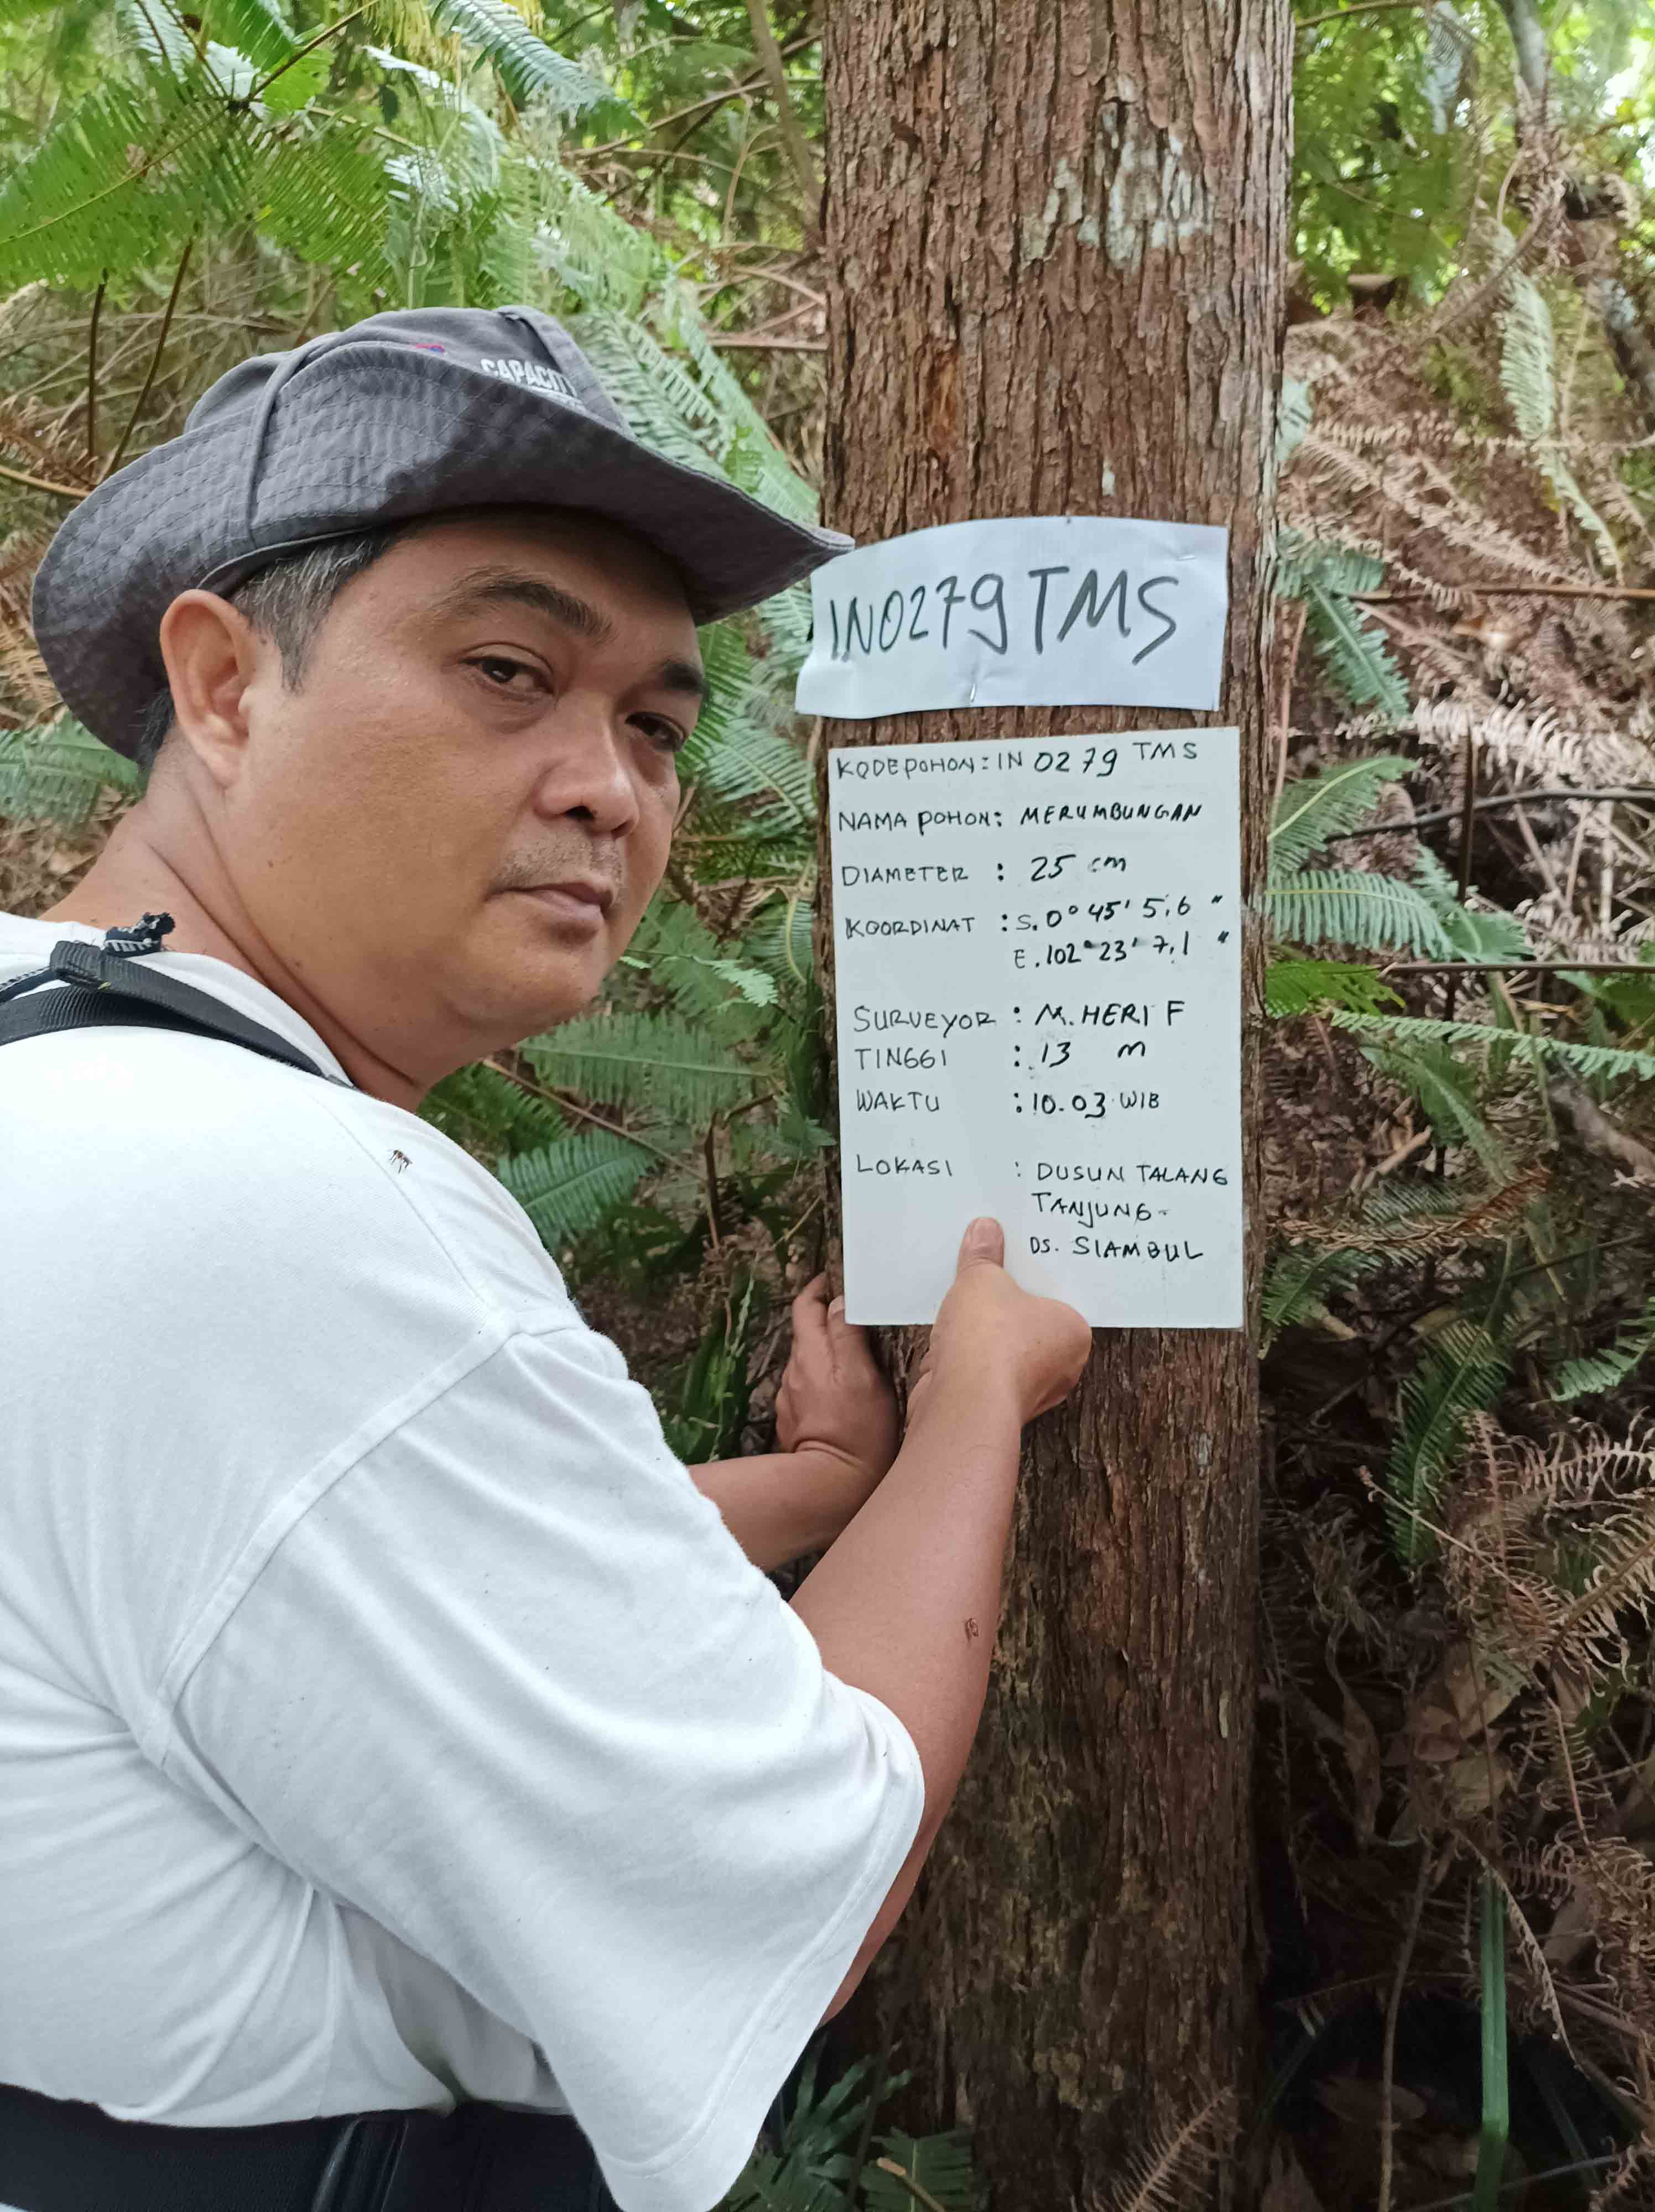 CAPACITY
IN0279 TMS
KODE POHON : IN 0279 TMS
NAMA POHON : MERUMBUNGAN
DIAMETER : 25 cm
KOORDINAT : S. 0° 45' 5,6 "
E. 102° 23' 7,1 "
SURVEYOR : M. HERI F
TINGGI : 13 m
WAKTU : 10.03 WIB
LOKASI : DUSUN TALANG
TANJUNG-
DS. SIAMBUL